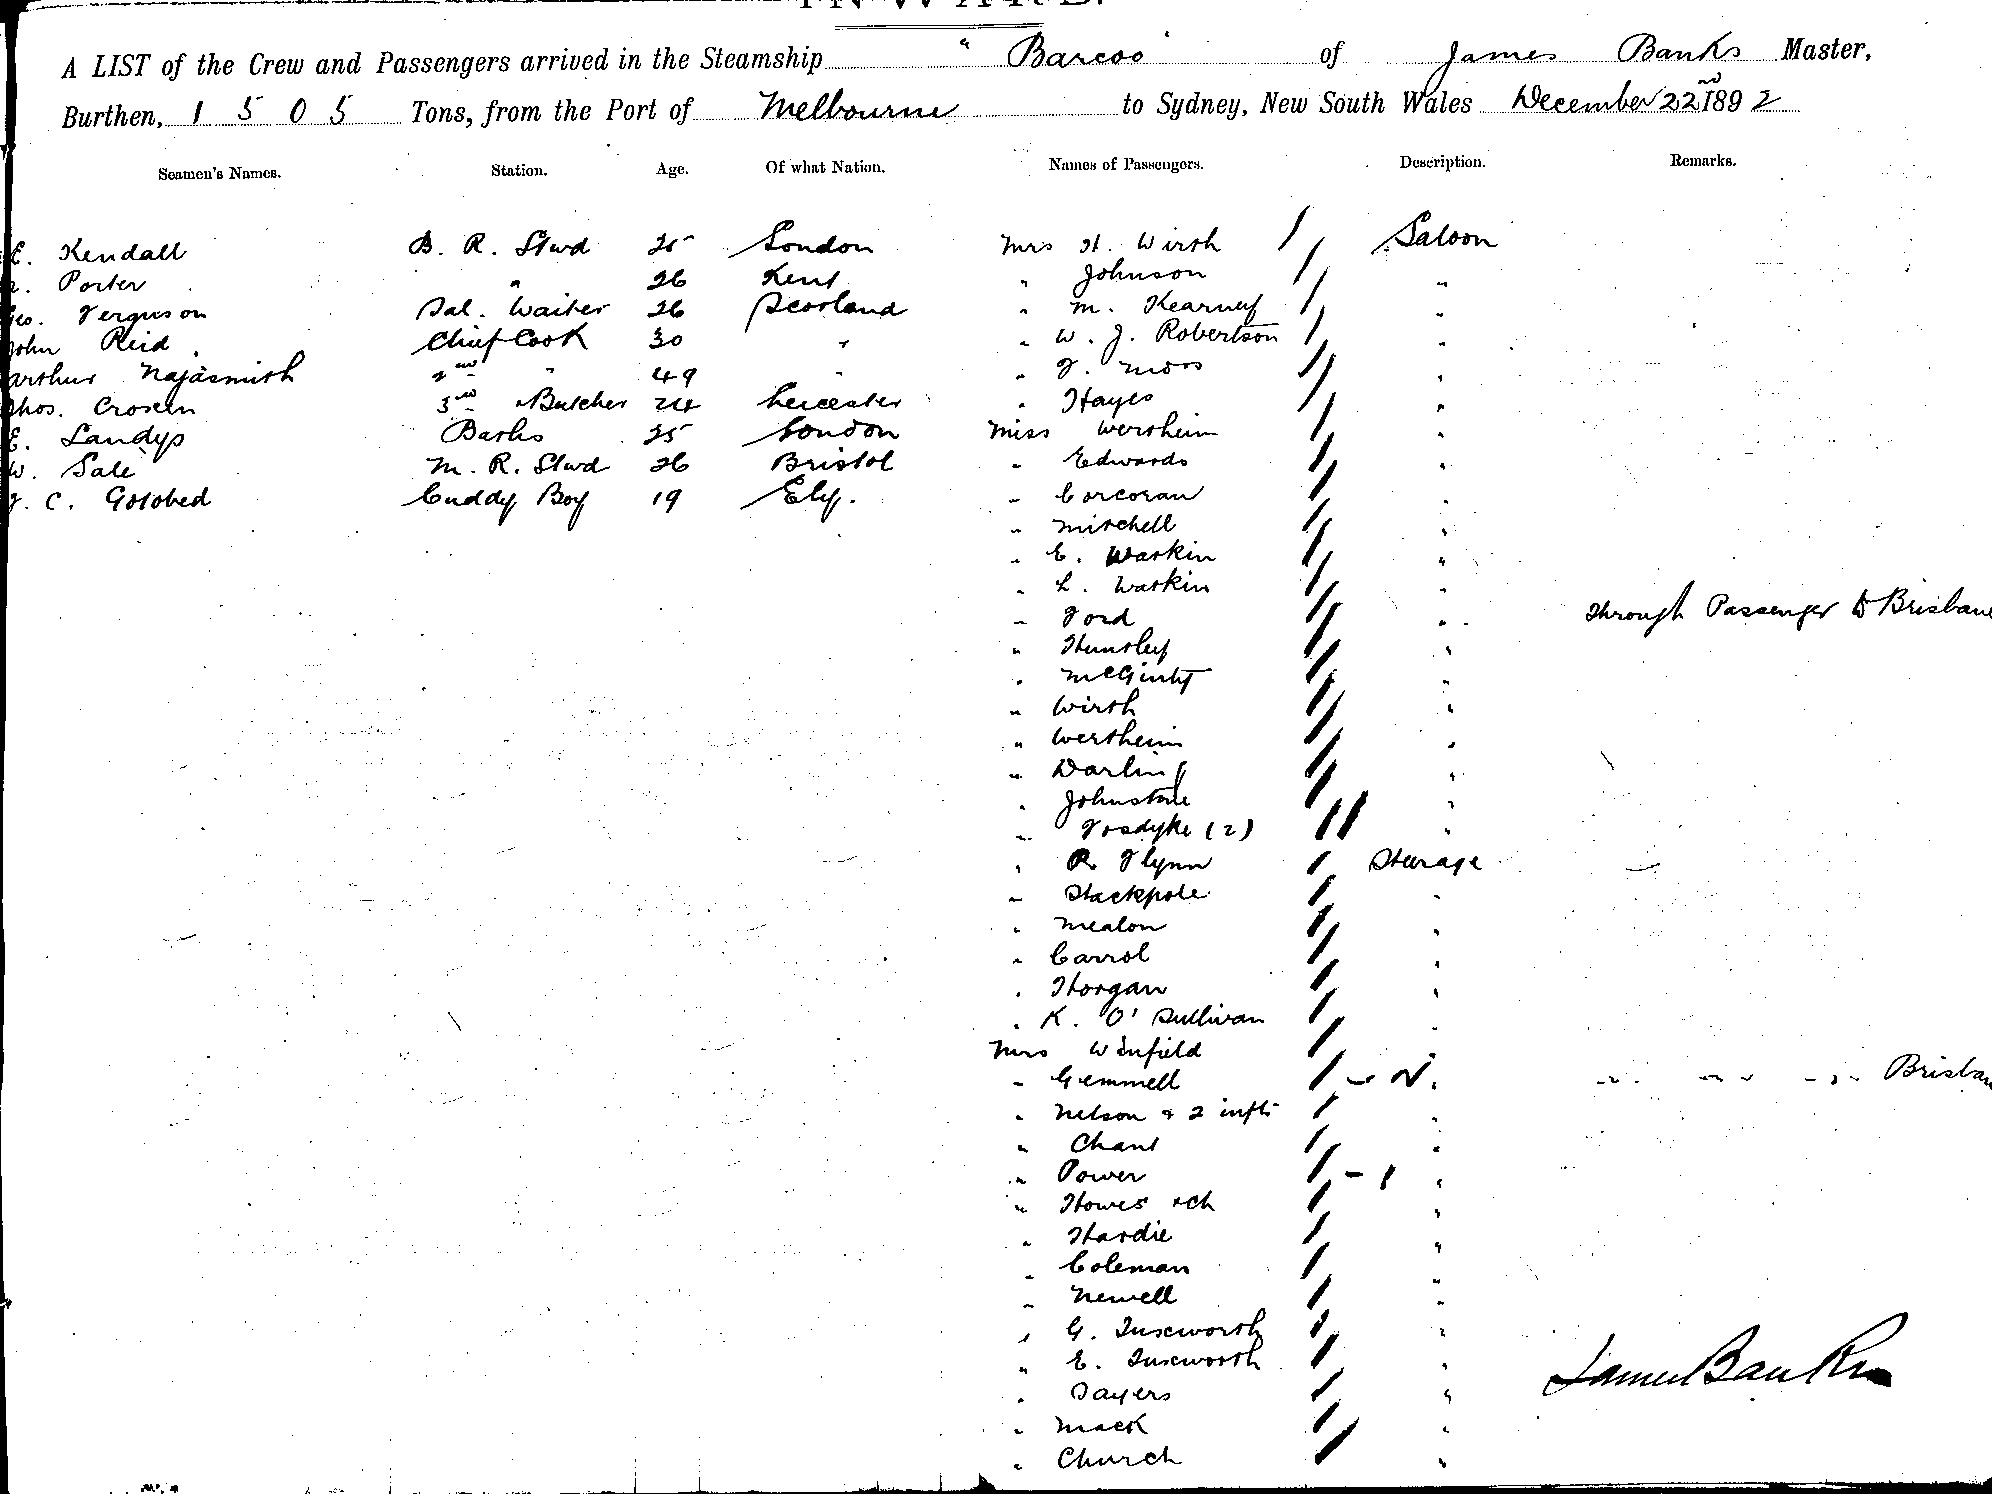 A LIST of the Crew and Passengers arrived in the Steamship "Barcoo" of James Banks Master,
Burthen, 1505 Tons, from the Port of Melbourne to Sydney, New South Wales December 22nd 1892
Seamen's Names. Station. Age. Of what Nation. Names of Passengers. Description. Remarks.
E. Kendall B. R. Stwd 25 London Mrs H. Wirth Saloon
Porter " 26 Kent " Johnson "
Geo. Ferguson Sal. Waiter 26 Scotland " M. Kearney "
John Reid Chief Cook 30 " " W. J. Robertson "
Arthur Najasmith 2nd " 49 " " J. Moss "
Thos. Crosein 3rd " Butcher 24 Leicester " Hayes "
E. Landys Baths 25 London Miss Wertheim "
W. Sale M. R. Stwd 26 Bristol " Edwards "
J. C. Gotobed Cuddy Boy 19 Ely. " Corcoran "
" Mitchell "
" E. Watkin "
" L. Watkin "
" Ford " Through Passenger to Brisbane
" Huntley "
" McGinty "
" Wirth "
" Wertheim "
" Darling "
" Johnstone "
" Fosdyke (2) "
" R. Flynn Steerage
" Stackpole "
" Mealon "
" Carrol "
" Horgan "
" K. O'Sullivan "
Mrs Winfield "
" Gemmell " " " " Brisban
" Nelson & 2 infts "
" Chant "
" Power - 1 "
" Howes & ch "
" Hardie "
" Coleman "
" Newell "
" G. Tuseworth "
" E. Tuseworth "
" Sayers "
James Banks
" Mack "
" Church "